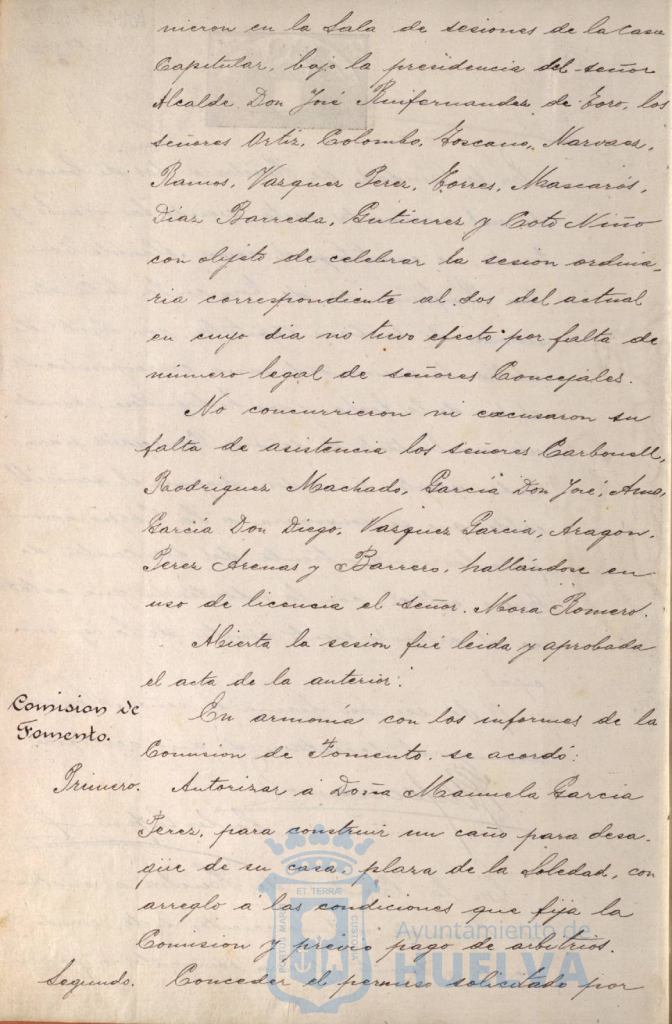 nieron en la Sala de sesiones de la Casa
Capitular, bajo la presidencia del señor
Alcalde Don José Ruifernandez de Toro, los
señores Ortiz, Colombo, Toscano, Narvaez,
Ramos, Vazquez Perez, Torres, Mascarós,
Diaz Barreda, Gutierrez y Coto Niño
con objeto de celebrar la sesion ordina-
ria correspondiente al dos del actual
en cuyo dia no tuvo efecto por falta de
número legal de señores Concejales.
No concurrieron ni excusaron su
falta de asistencia los señores Carbonell,
Rodriguez Machado, García Don José,
García Don Diego, Vazquez Garcia, Aragon,
Perez Arenas y Barrero, hallándose en
uso de licencia el señor Mora Romero.
Abierta la sesion fué leida y aprobada
el acta de la anterior.
Comision de
Fomento.
En armonía con los informes de la
Comision de Fomento, se acordó:
Primero. Autorizar á Doña Manuela Garcia
Perez, para construir un caño para desa-
güe de su casa, plaza de la Soledad, con
arreglo á las condiciones que fija la
Comision y previo pago de arbitrios.
Segundo. Conceder el permiso solicitado por
PORTUS MARIS
ET TERRÆ
CUSTODIA
Ayuntamiento de
HUELVA